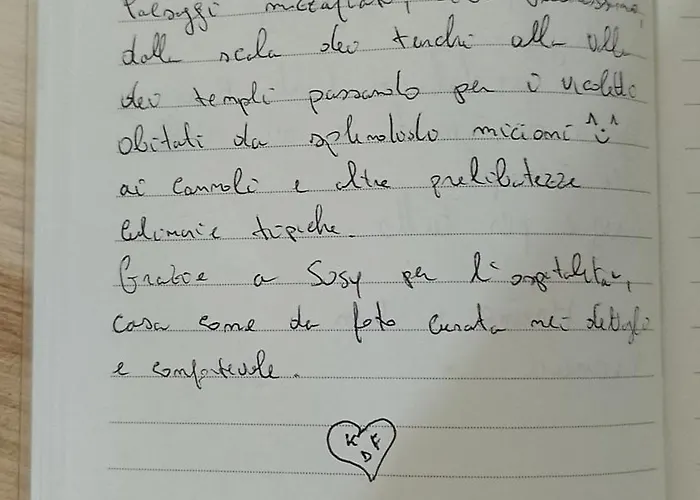 Paesaggi
dalla scala dei turchi alla valle
dei templi passando per i vicoletti
abitati da splendidi micioni ^^
ai cannoli e altre prelibatezze
culinarie tipiche.
Grazie a Sosy per l'ospitalità,
casa come da foto curata nei dettagli
e confortevole.
K F
D